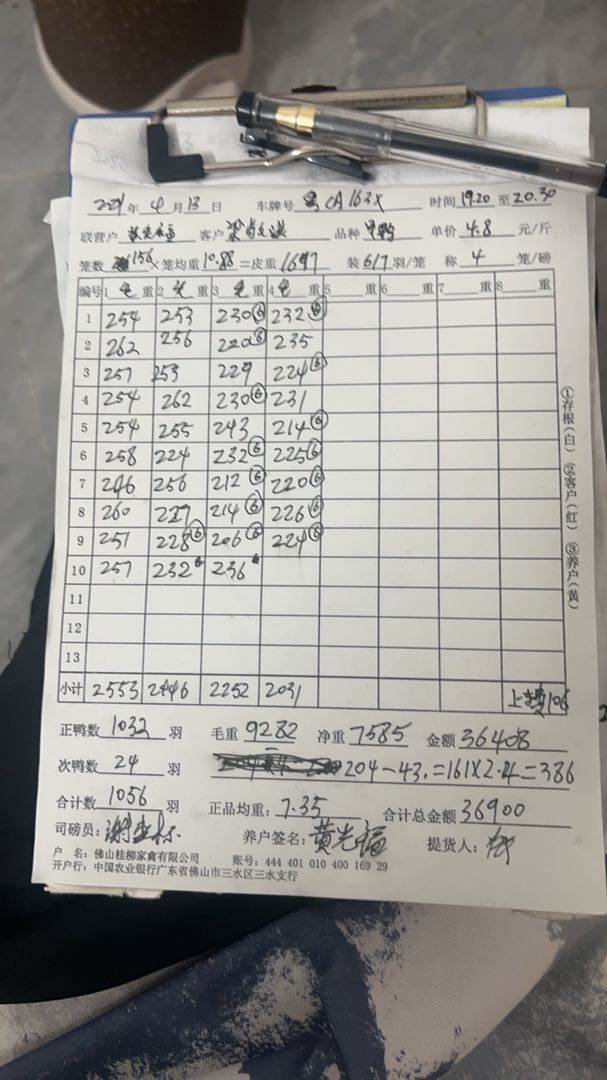 2021年 4 月 13 日 车牌号 CA163X 时间 19.20 至 20.30
联营户 客户 品种 单价 4.8 元/斤
笼数 156 ×笼均重 10.88 =皮重 1697 装 6/7 羽/笼 称 4 笼/磅
编号 1 毛 重 2 毛 重 3 毛 重 4 毛 重 5 重 6 重 7 重 8 重
1 254 253 230⑥ 232⑥
2 262 256 220⑥ 235
3 257 253 229 224⑥
4 254 262 230⑥ 231
5 254 255 243 214⑥
6 258 224 232⑥ 225⑥
7 246 256 212⑥ 220⑥
8 260 227 214⑥ 226⑥
9 251 228⑥ 206⑥ 224⑥
10 257 232 236
11
12
13
小计 2553 2446 2252 2031 上车费106
①存根(白) ②客户(红) ③养户(黄)
正鸭数 1032 羽 毛重 9282 净重 7585 金额 36408
次鸭数 24 羽 204-43.=161X2.4=386
合计数 1056 羽 正品均重: 7.35 合计总金额 36900
司磅员: 养户签名: 黄光福 提货人:
户 名: 佛山桂柳家禽有限公司 账号: 444 401 010 400 169 29
开户行: 中国农业银行广东省佛山市三水区三水支行